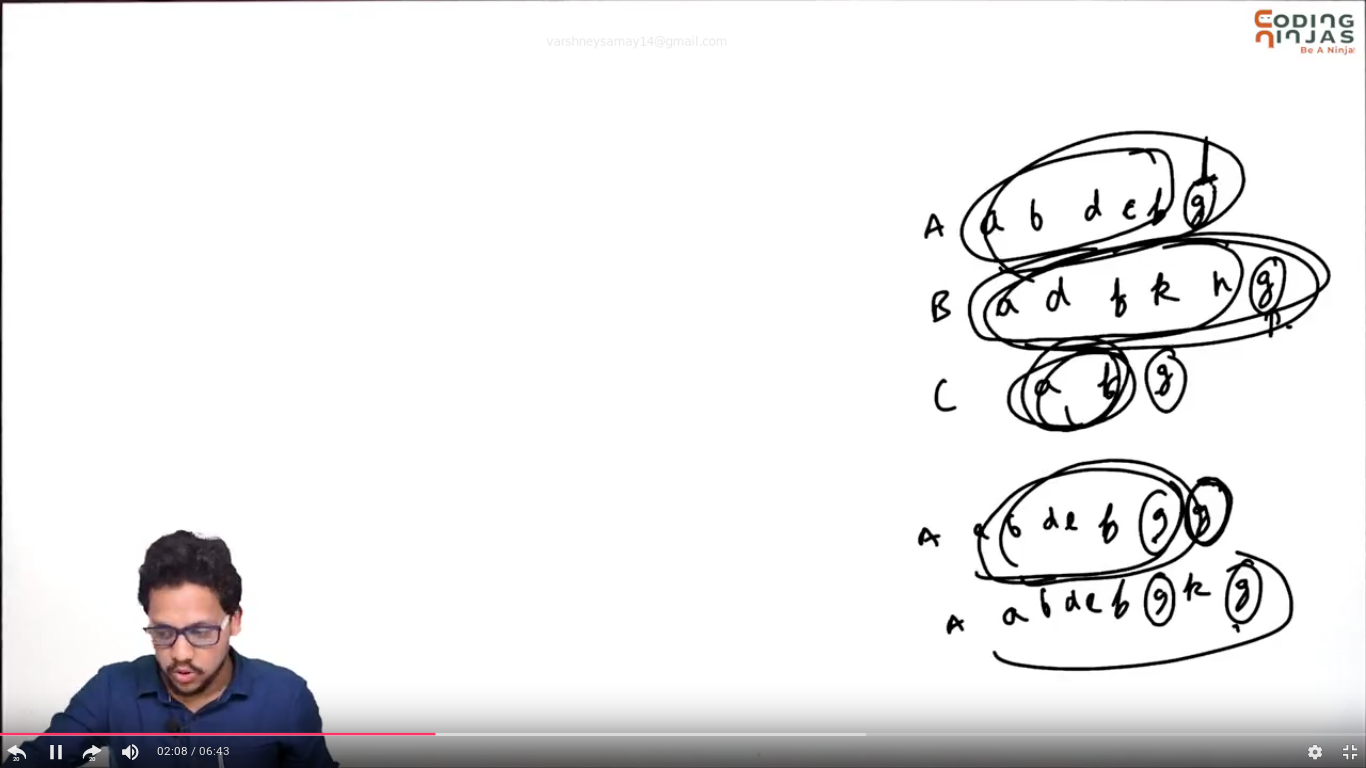 varshneysamay14@gmail.com
CODING
NINJAS
Be A Ninja!
A a b d e f g
B a d f k n g
C a f g
A a b d e f g g
A a b d e f g k g
20 20 02:08 / 06:43